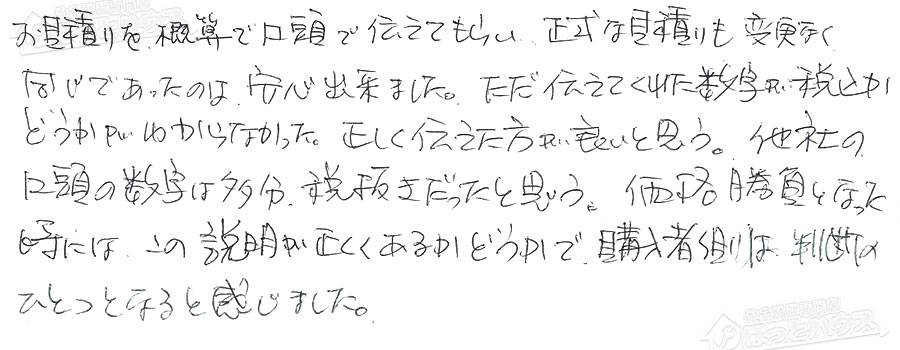 お見積りを概算で口頭で伝えてもらい、正式な見積りも変更なく
同じであったのは安心出来ました。ただ伝えてくれた数字が税込か
どうかがわからなかった。正しく伝えた方が良いと思う。他社の
口頭の数字は多分、税抜きだったと思う。価格勝負となった
時には、この説明が正しくあるかどうかで、購入者側は判断の
ひとつとなると感じました。
ほっとハウス